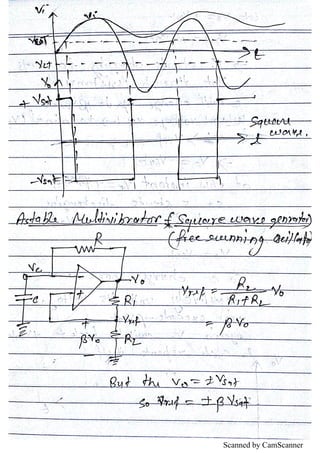 Vi
Vi
VUT
t
VLT
Vo
+Vsat
Square
wave.
t
-Vsat
Astable Multivibrator & Square wave generator
(free running oscillator)
R
Vc
-
+
Vo
C
R1
Vref
+
βVo
-
R2
Vref = R2 / R1+R2 Vo
= βVo
But the Vo = ±Vsat
so Vref = ±βVsat
Scanned by CamScanner